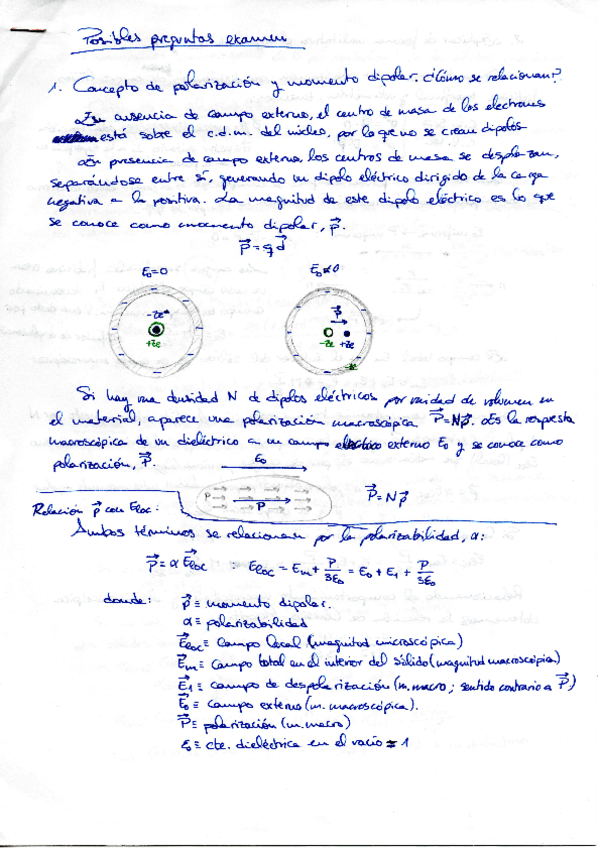 Posibles preguntas examen
1. Concepto de polarización y momento dipolar. ¿Cómo se relacionan?
En ausencia de campo externo, el centro de masa de los electrones
está sobre el c.d.m. del núcleo, por lo que no se crean dipolos
En presencia de campo externo los centros de masa se desplazan,
separándose entre sí, generando un dipolo eléctrico dirigido de la carga
negativa a la positiva. La magnitud de este dipolo eléctrico es lo que
se conoce como momento dipolar, p⃗.
p⃗ = q d⃗
E₀=0 E₀≠0
-Ze +Ze
p⃗
-Ze +Ze
Si hay una densidad N de dipolos eléctricos por unidad de volumen en
el material, aparece una polarización macroscópica P⃗=Np⃗. Es la respuesta
macroscópica de un dieléctrico a un campo externo E₀ y se conoce como
polarización, P⃗.
E₀
P P
P⃗=Np⃗
Relación p⃗ con Eloc:
Ambos términos se relacionan por la polarizabilidad, α:
p⃗ = α E⃗loc : Eloc = Em + P/3ε₀ = E₀ + E₁ + P/3ε₀
donde: p⃗ ≡ momento dipolar.
α ≡ polarizabilidad
E⃗loc ≡ Campo local (magnitud microscópica)
E⃗m ≡ campo total en el interior del sólido (magnitud macroscópica)
E⃗1 ≡ campo de despolarización (m. macro; sentido contrario a P⃗)
E⃗0 ≡ campo externo (m. macroscópica).
P⃗ ≡ polarización (m. macro)
ε₀ ≡ cte. dieléctrica en el vacío ≈ 1